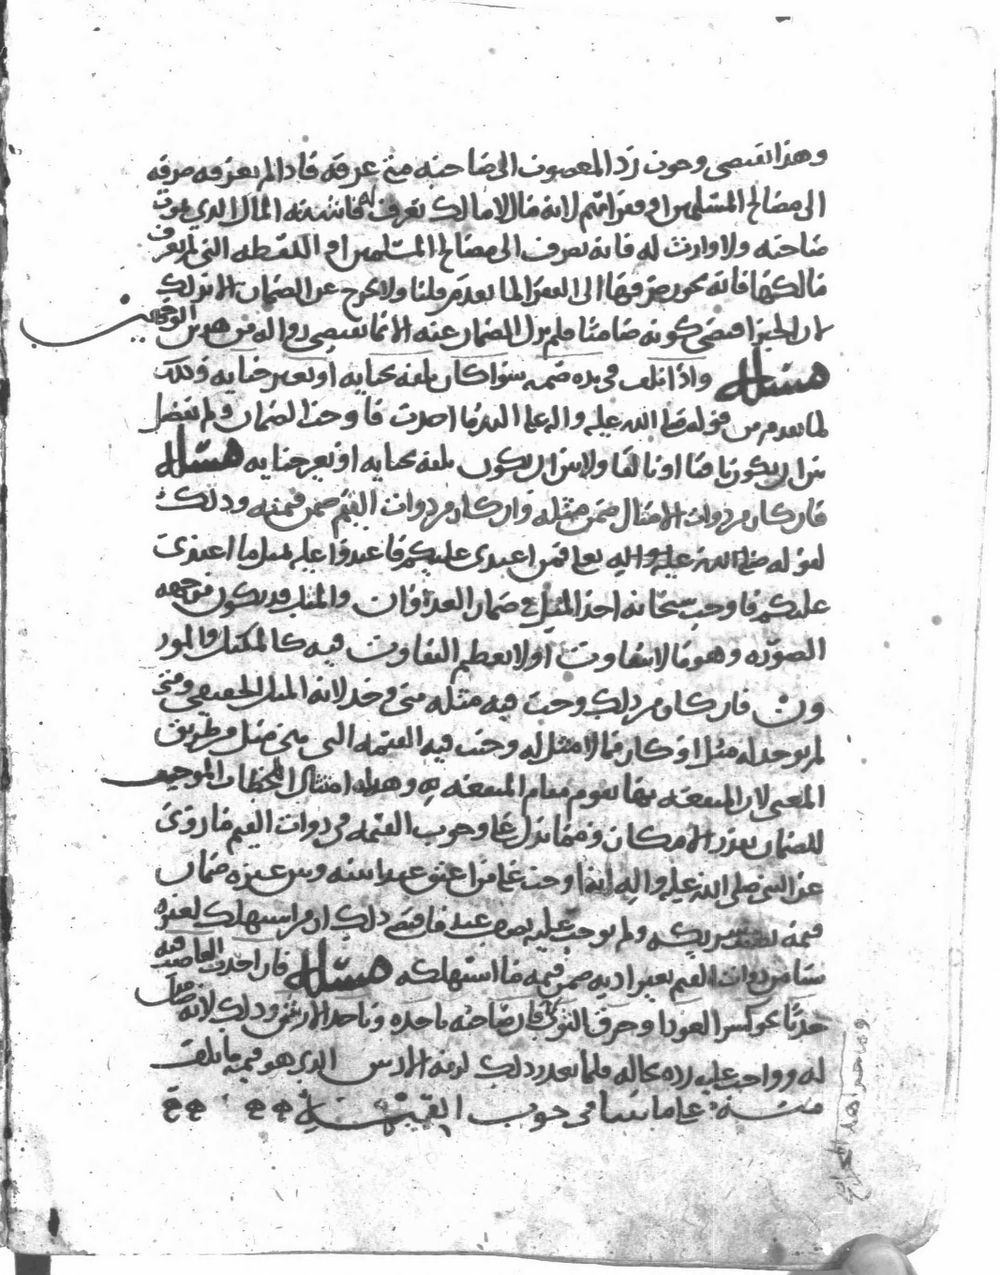 وهذا يقتضي وجوب رد المغصوب الى صاحبه متى عرفه فاذا لم يعرفه صرفه
الى مصالح المسلمين او فقرائهم لانه مال لا مالك يعرف له فاشبه المال الذي يموت
صاحبه ولا وارث له فانه يصرف الى مصالح المسلمين او اللقطه التي لم يعرف
مالكها فانه يجوز صرفها الى الفقرا لما تقدم قلنا ولا يخرج عن الضمان الا بذلك
لان الخبر اقتضى كونه ضامنا فلم يزل الضمان عنه الا بما يقتضي زواله من هذين الوجهين
مسئلة واذا تلف في يده ضمنه سوا كان تلفه بجنايه او بغير جنايه وذلك
لما تقدم من قوله صلى الله عليه واله على اليد ما اخذت فاوجب الضمان ولم يفصل
بين ان يكون باقيا او تالفا ولا بين ان يكون تلفه بجنايه او بغير جنايه مسئلة
فان كان من ذوات الامثال ضمن مثله وان كان من ذوات القيم ضمن قيمته وذلك
لقوله تعالى فمن اعتدى عليكم فاعتدوا عليه بمثل ما اعتدى
عليكم فاوجب سبحانه اخذ المثل في ضمان العدوان والمثل قد يكون من جهه
الصوره وهو ما لا يتفاوت او لا يعظم التفاوت فيه كالمكيل والموز
ون فان كان من ذلك وجب فيه مثله متى وجد لانه المثل الحقيقي ومتى
لم يوجد له مثل او كان مما لا مثل له وجبت فيه القيمه التي هي مثل من طريق
المعنى لان المنفعه بها تقوم مقام المنفعه به وهذا
للضمان بقدر الامكان ومما يدل على وجوب القيمه في ذوات القيم ما روي
عن النبي صلى الله عليه واله انه اوجب على من اعتق عبدا بينه وبين غيره ضمان
قيمه نصيب شريكه ولم يوجب عليه نصف عبد فاقتضى ذلك ان من استهلك لغيره
شيا من ذوات القيم بغير اذنه ضمن قيمه ما استهلكه مسئلة فان احدث الغاصب فيه
حدثا نحو كسر العود او خرق الثوب فان صاحبه ياخذه وياخذ الارش وذلك لانه
له وواجب عليه رده بحاله فلما تعذر ذلك لزمه الارش الذي هو قيمه ما تلف
منه على ما بينا في وجوب القيمه